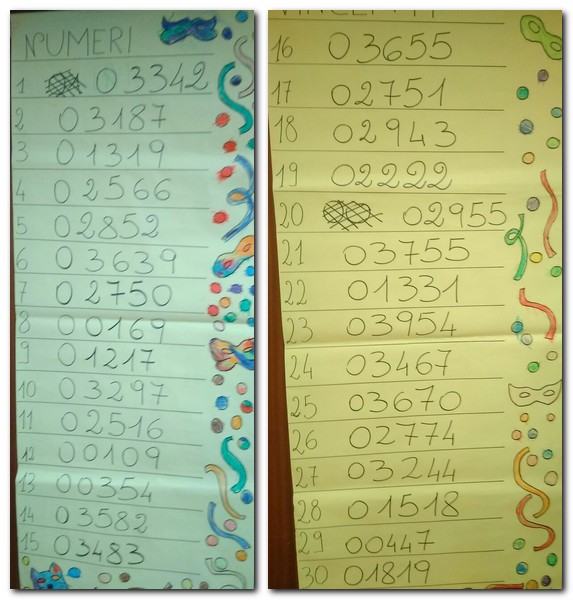 NUMERI
1 03342
2 03187
3 01319
4 02566
5 02852
6 03639
7 02750
8 00169
9 01217
10 03297
11 02516
12 00109
13 00354
14 03582
15 03483
VINCENTI
16 03655
17 02751
18 02943
19 02222
20 02955
21 03755
22 01331
23 03954
24 03467
25 03670
26 02774
27 03244
28 01518
29 00447
30 01819